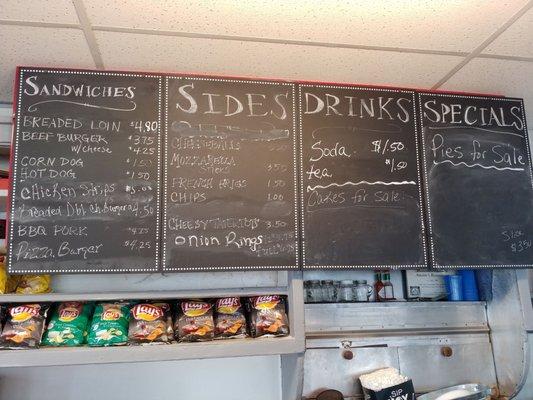 SANDWICHES
BREADED LOIN $4.80
BEEF BURGER $3.75
W/CHEESE $4.25
CORN DOG $1.50
HOT DOG $1.50
Chicken Strips
Breaded Dbl Ch. burger 4.50
BBQ PORK $4.25
Pizza Burger $4.25
SIDES
CHEESEBALLS
MOZZARELLA
STICKS 3.50
FRENCH FRIES 1.50
CHIPS 1.00
CHEESY 3.50
Onion Rings
DRINKS
Soda $1.50
tea $1.50
Cakes for sale
SPECIALS
Pies for Sale
Slice
$3.50
Lay's
Lay's
Lay's
Lay's
Lay's
Lay's
Lay's
SIP